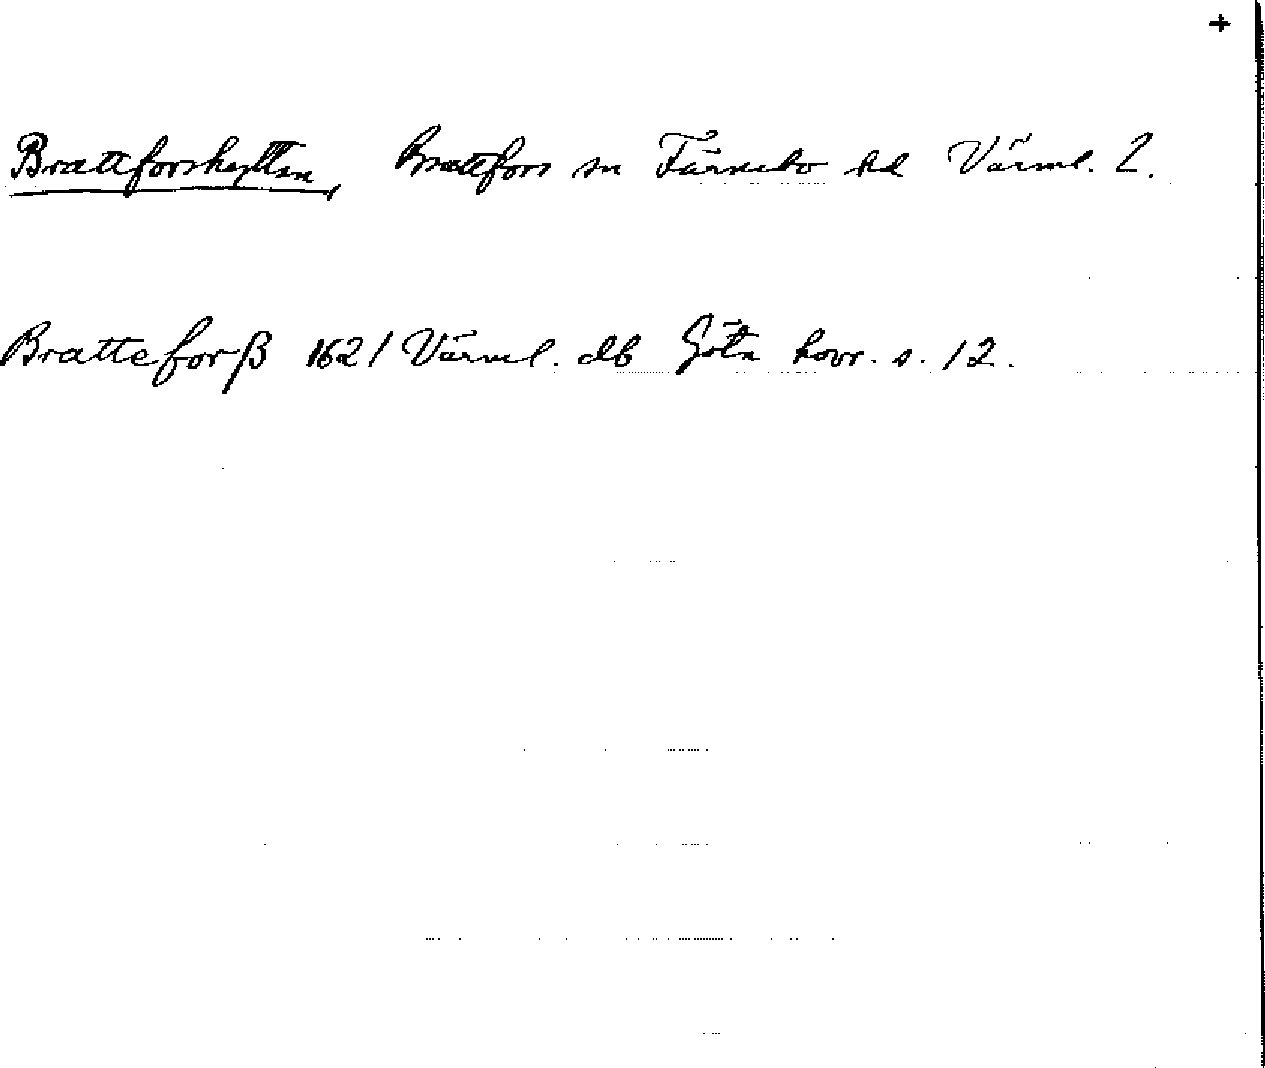 +
Brattforshyttan, Brattfors sn Färnebo hd Värml. l.
Bratteforß 1621 Värml. db Göta hovr. s. 12.